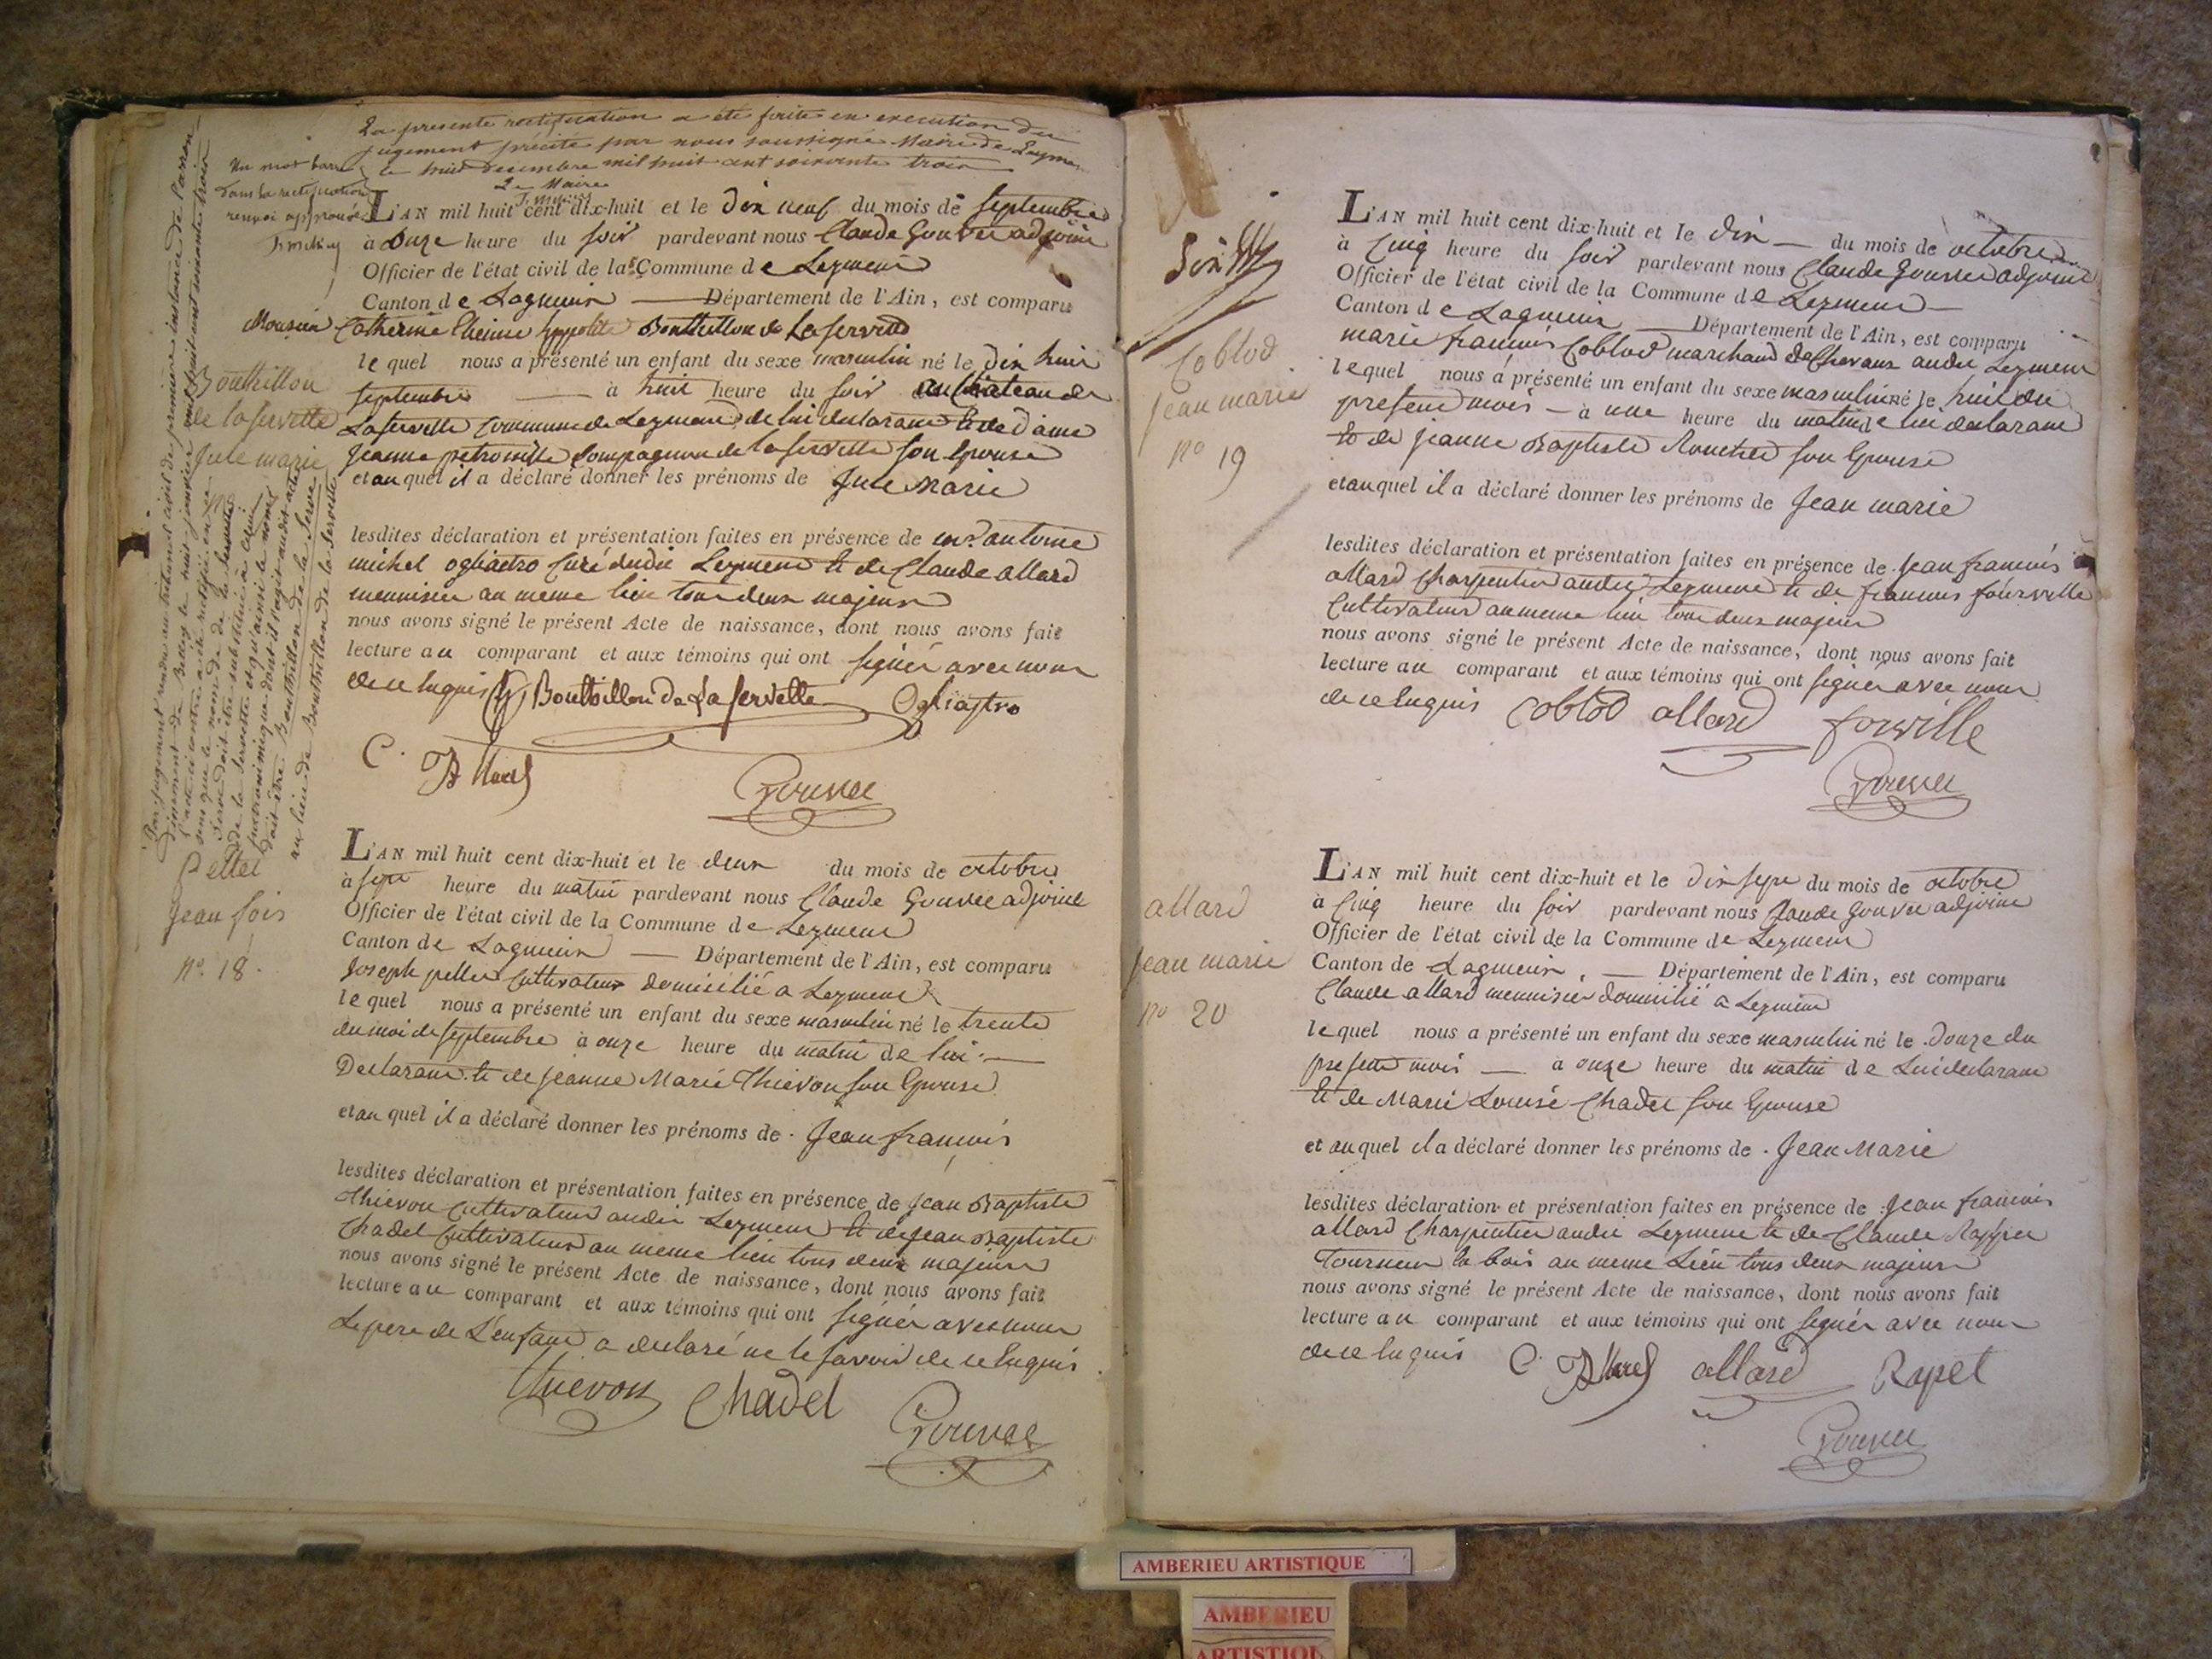 La presente rectification a été faite en execution du
jugement précité par nous soussigné Maire de Leymen
le huit decembre mil huit cent soixante trois
Le Maire
Un mot barré
dans la rectification
renvoi approuvé
L'AN mil huit cent dix-huit et le dix neuf du mois de septembre
à onze heure du soir pardevant nous Claude Gouvee adjoint
Officier de l'état civil de la Commune de Leyment
Canton de Lagnieux Département de l'Ain, est comparu
Monsieur Catherine Etienne hyppolite Bouthillon de Laservette
lequel nous a présenté un enfant du sexe masculin né le dix huit
septembre à huit heure du soir au Chateau de
Laservette Commune de Leyment de lui declarant et de dame
jeanne petronille Compagnon de laservette son Epouse
et au quel il a déclaré donner les prénoms de Jule Marie
lesdites déclaration et présentation faites en présence de mr. antoine
michel ogliastro Curé dudit Leyment et de Claude allard
menuisier au meme lieu tous deux majeurs
nous avons signé le présent Acte de naissance, dont nous avons fait
lecture au comparant et aux témoins qui ont signés avec nous
de ce enquis Bouthillon de Laservette Ogliastro
C. Allard
Gouvee
Bouthillon
de laservette
Jule marie
Par jugement rendu au tribunal civil de première instance de l'arron-
dissement de Belley le huit janvier mil huit cent soixante trois
l'acte ci contre a été rectifié en ce
sens que le nom de de la Servette
doit être substitué à celui
de la Servette et qu'ainsi le nom
patronimique dont il s'agit audit acte
doit être Bouthillon de la Serve
au lieu de Bouthillon de la Servette
L'AN mil huit cent dix-huit et le deux du mois de octobre
à sept heure du matin pardevant nous Claude Gouvee adjoint
Officier de l'état civil de la Commune de Leyment
Canton de Lagnieux Département de l'Ain, est comparu
Joseph pellet Cultivateur domicilié a Leyment
lequel nous a présenté un enfant du sexe masculin né le trente
du moi de septembre à onze heure du matin de lui
Declarant et de jeanne Marie Thievon son Epouse
et au quel il a déclaré donner les prénoms de Jean francois
lesdites déclaration et présentation faites en présence de jean Baptiste
Thievon Cultivateur audit Leyment et de jean Baptiste
Chadel Cultivateur au meme lieu tous deux majeurs
nous avons signé le présent Acte de naissance, dont nous avons fait
lecture au comparant et aux témoins qui ont signés avec nous
Le pere de L'enfant a declaré ne le savoir de ce enquis
Thievon Chadel
Gouvee
Pellet
jean fois
no. 18.
L'AN mil huit cent dix-huit et le dix du mois de octobre
à Cinq heure du soir pardevant nous Claude Gouvee adjoint
Officier de l'état civil de la Commune de Leyment
Canton de Lagnieux Département de l'Ain, est comparu
marie francois Coblod marchand de Chevaux audit Leyment
lequel nous a présenté un enfant du sexe masculin né le huit du
present mois à une heure du matin de lui declarant
et de jeanne Baptiste son Epouse
et au quel il a déclaré donner les prénoms de Jean marie
lesdites déclaration et présentation faites en présence de jean francois
allard Charpentier audit Leyment et de francois forville
Cultivateur au meme lieu tous deux majeurs
nous avons signé le présent Acte de naissance, dont nous avons fait
lecture au comparant et aux témoins qui ont signés avec nous
de ce enquis Coblod allard forville
Gouvee
Coblod
jean marie
no 19
L'AN mil huit cent dix-huit et le dix sept du mois de octobre
à Cinq heure du soir pardevant nous Claude Gouvee adjoint
Officier de l'état civil de la Commune de Leyment
Canton de Lagnieux. Département de l'Ain, est comparu
Claude allard menuisier domicilié a Leyment
lequel nous a présenté un enfant du sexe masculin né le Douze du
present mois à onze heure du matin de Lui declarant
et de Marie Louise Chadel son Epouse
et au quel il a déclaré donner les prénoms de Jean Marie
lesdites déclaration et présentation faites en présence de jean francois
allard Charpentier audit Leyment et de Claude
Tourneur en bois au meme Lieu tous deux majeurs
nous avons signé le présent Acte de naissance, dont nous avons fait
lecture au comparant et aux témoins qui ont signés avec nous
de ce enquis C. Allard allard Rapet
Gouvee
allard
jean marie
no 20
AMBERIEU ARTISTIQUE
AMBERIEU
ARTISTIQU